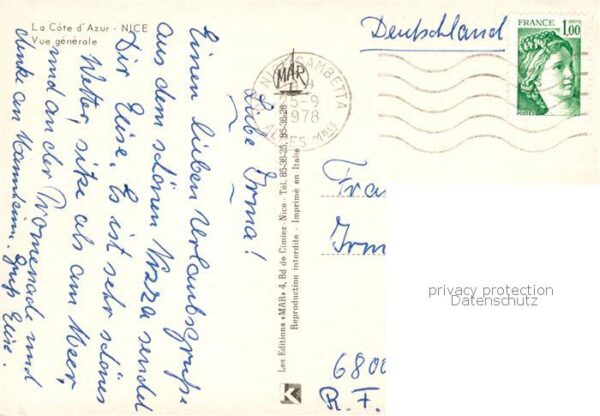 La Côte d'Azur - NICE
Vue générale
Liebe Irma!
Einen lieben Urlaubsgruß
aus dem schönen Nizza sendet
Dir Elise. Es ist sehr schönes
Wetter, sitze als am Meer,
und an der Promenade und
denke an Mannheim. Gruß Elise.
Les Editions «MAR» 4, Bd de Cimiez - Nice - Tel. 85-36-25, 85-36-28
Reproduction interdite - Imprimé en Italie
MAR
K
Deutschland
FRANCE
1,00
POSTES
GAMBETTA
25-9
1978
Fra
Irm
6800
R.F.
privacy protection
Datenschutz